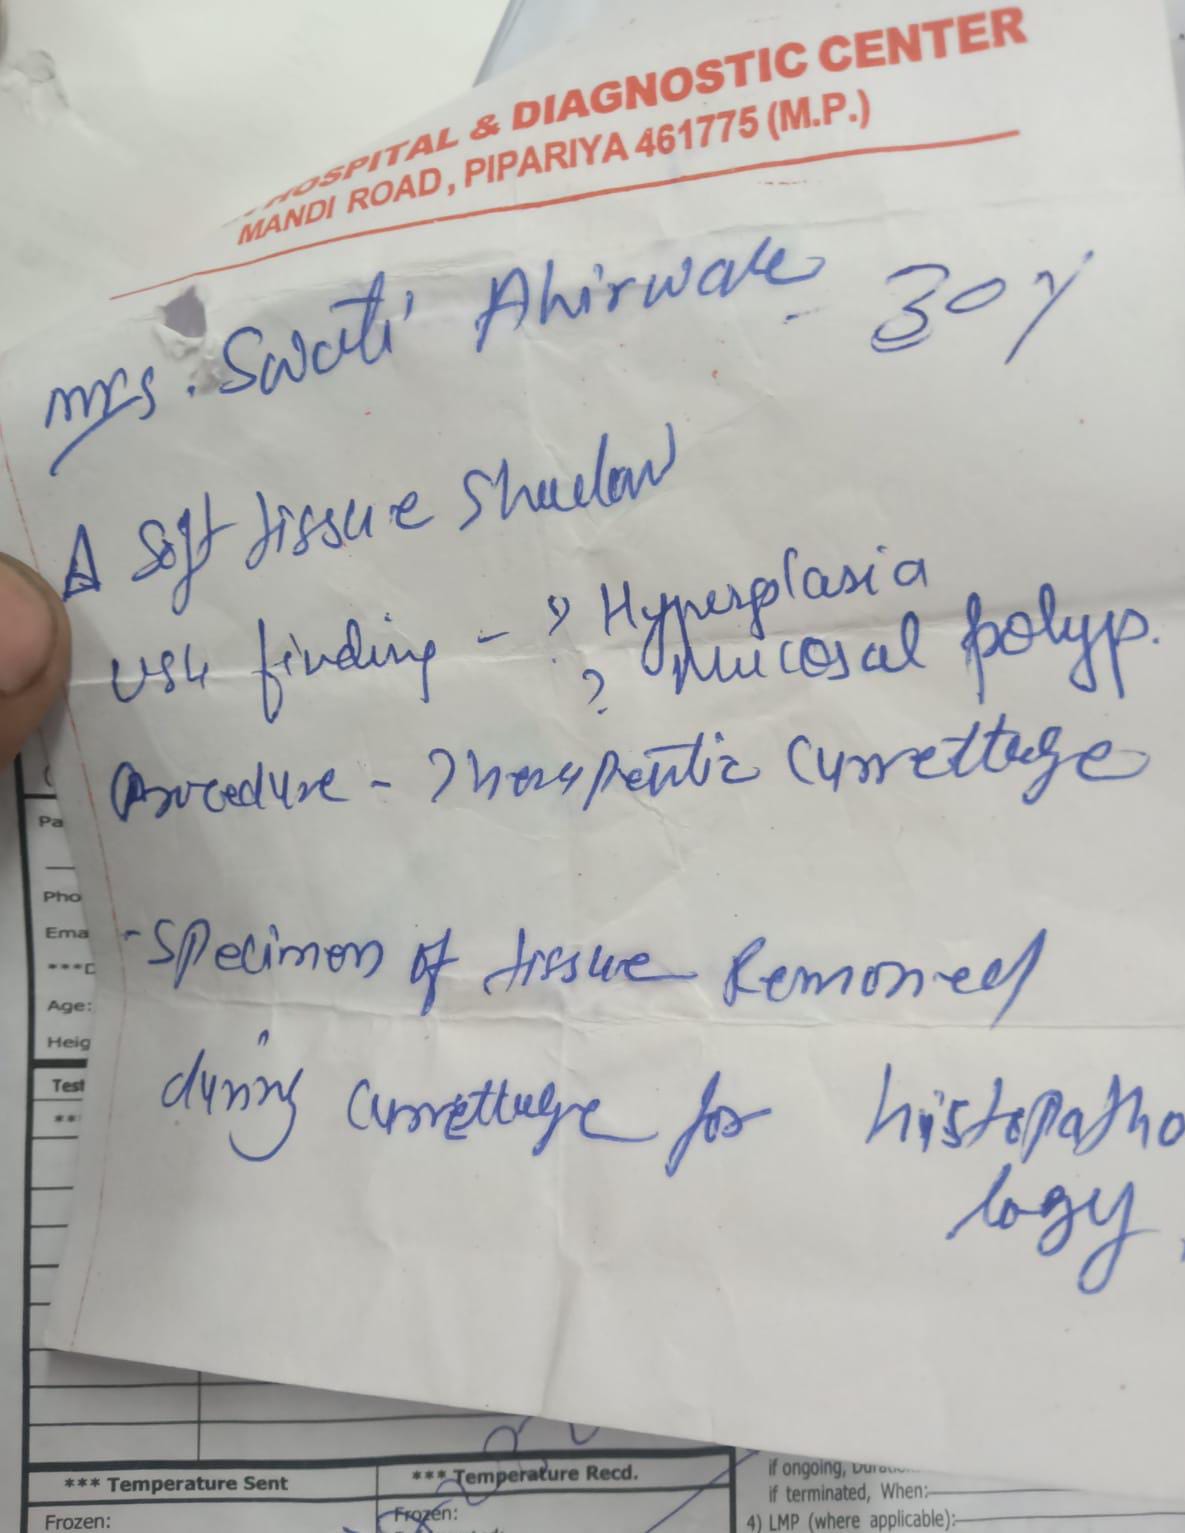 HOSPITAL & DIAGNOSTIC CENTER
MANDI ROAD, PIPARIYA 461775 (M.P.)
Mrs. Swati Ahirwar - 30 Y
A soft tissue Shadow
USG finding - ? Hyperplasia
? Mucosal polyp.
Procedure - Therapeutic Currettage
- Specimen of tissue Removed
during Currettage for histopatho
logy.
Pa
Pho
Ema
Age:
Heig
Test
*** Temperature Sent
*** Temperature Recd.
Frozen:
Frozen:
if ongoing,
if terminated, When:
4) LMP (where applicable):